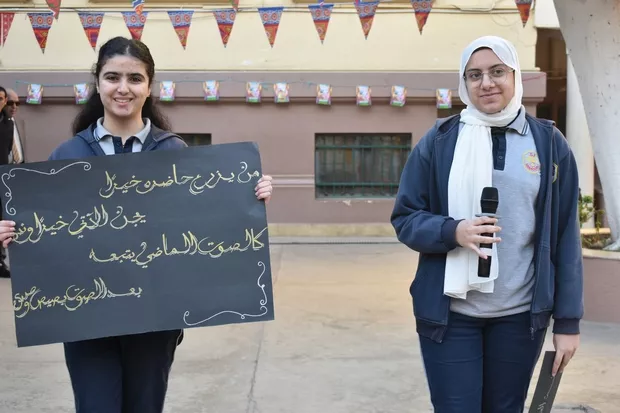 من يزرع حاضره خيرًا
يجنِ الآتي خيرًا
كالصوت الماضي يتبعه
بعد الصوت